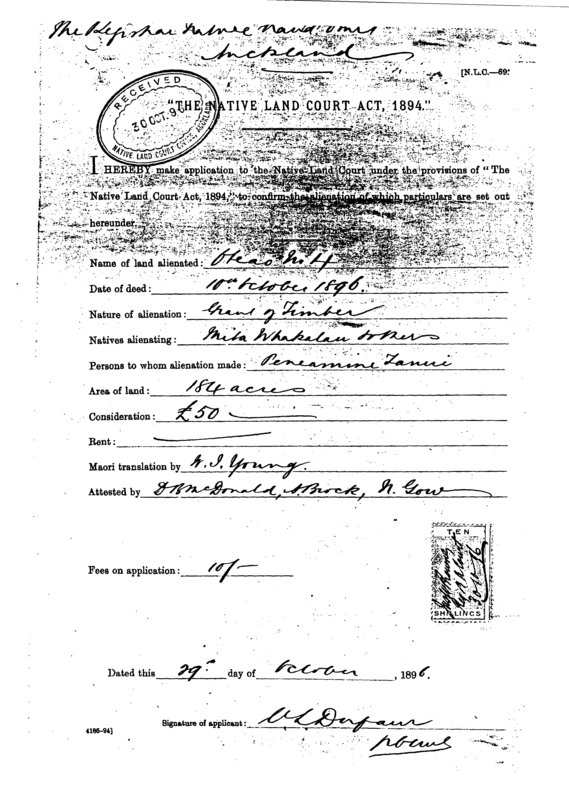 The Registrar Native Land Court
Auckland
[N.L.C.—69.
RECEIVED
30 OCT. 96
NATIVE LAND COURT OFFICE AUCKLAND
"THE NATIVE LAND COURT ACT, 1894."
I HEREBY make application to the Native Land Court under the provisions of "The
Native Land Court Act, 1894," to confirm the alienation of which particulars are set out
hereunder.
Name of land alienated:
Date of deed: 10th October 1896.
Nature of alienation: Grant of Timber
Natives alienating: Mita Whakatau & others
Persons to whom alienation made: Peneamine Tanui
Area of land: 184 acres
Consideration: £50
Rent:
Maori translation by W. J. Young.
Attested by D McDonald, Brock, N. Gow
TEN
SHILLINGS
Fees on application: 10/-
Dated this 29th day of October, 1896.
Signature of applicant:
4186-94]